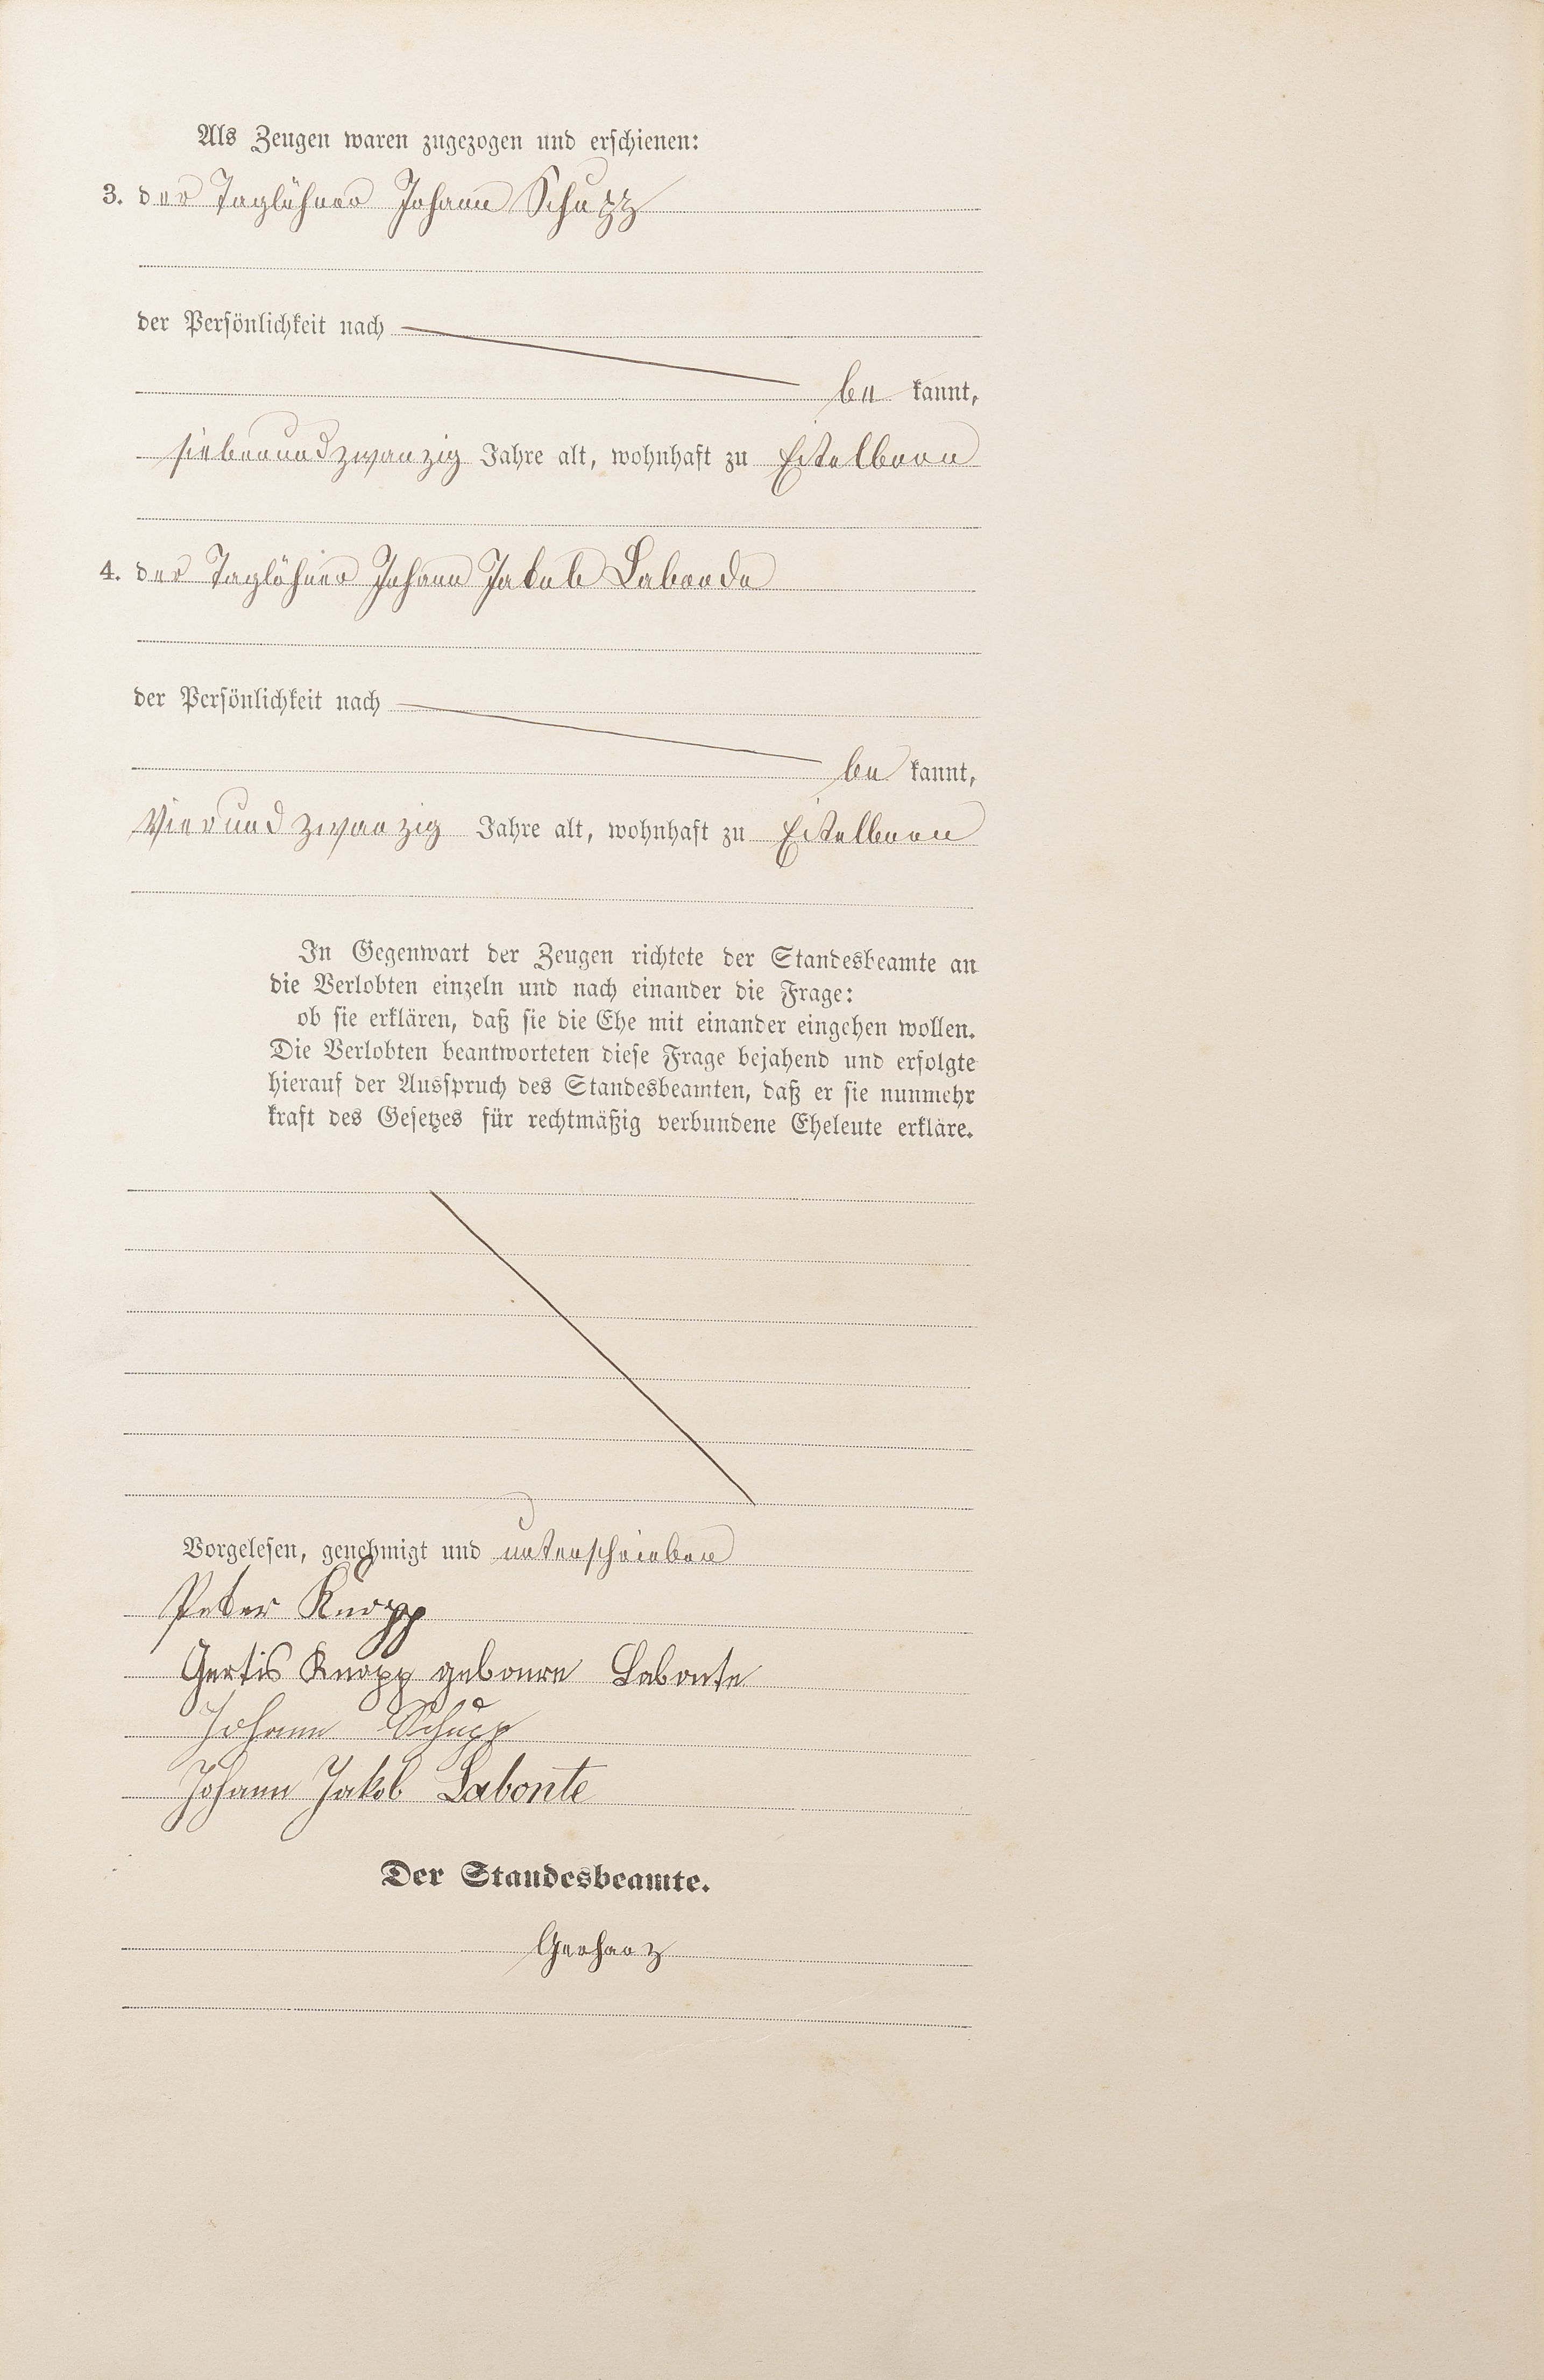 Als Zeugen waren zugezogen und erschienen:
3. der Taglöhner Johann Schupp
der Persönlichkeit nach
be kannt,
siebenundzwanzig Jahre alt, wohnhaft zu Eitelborn
4. der Taglöhner Johann Jakob Labonde
der Persönlichkeit nach
be kannt,
Vierundzwanzig Jahre alt, wohnhaft zu Eitelborn
In Gegenwart der Zeugen richtete der Standesbeamte an
die Verlobten einzeln und nach einander die Frage:
ob sie erklären, daß sie die Ehe mit einander eingehen wollen.
Die Verlobten beantworteten diese Frage bejahend und erfolgte
hierauf der Ausspruch des Standesbeamten, daß er sie nunmehr
kraft des Gesetzes für rechtmäßig verbundene Eheleute erkläre.
Vorgelesen, genehmigt und unterschrieben
Peter Knopp
Knopp Labonte
Johann Schupp
Johann Jakob Labonte
Der Standesbeamte.
Gerharz